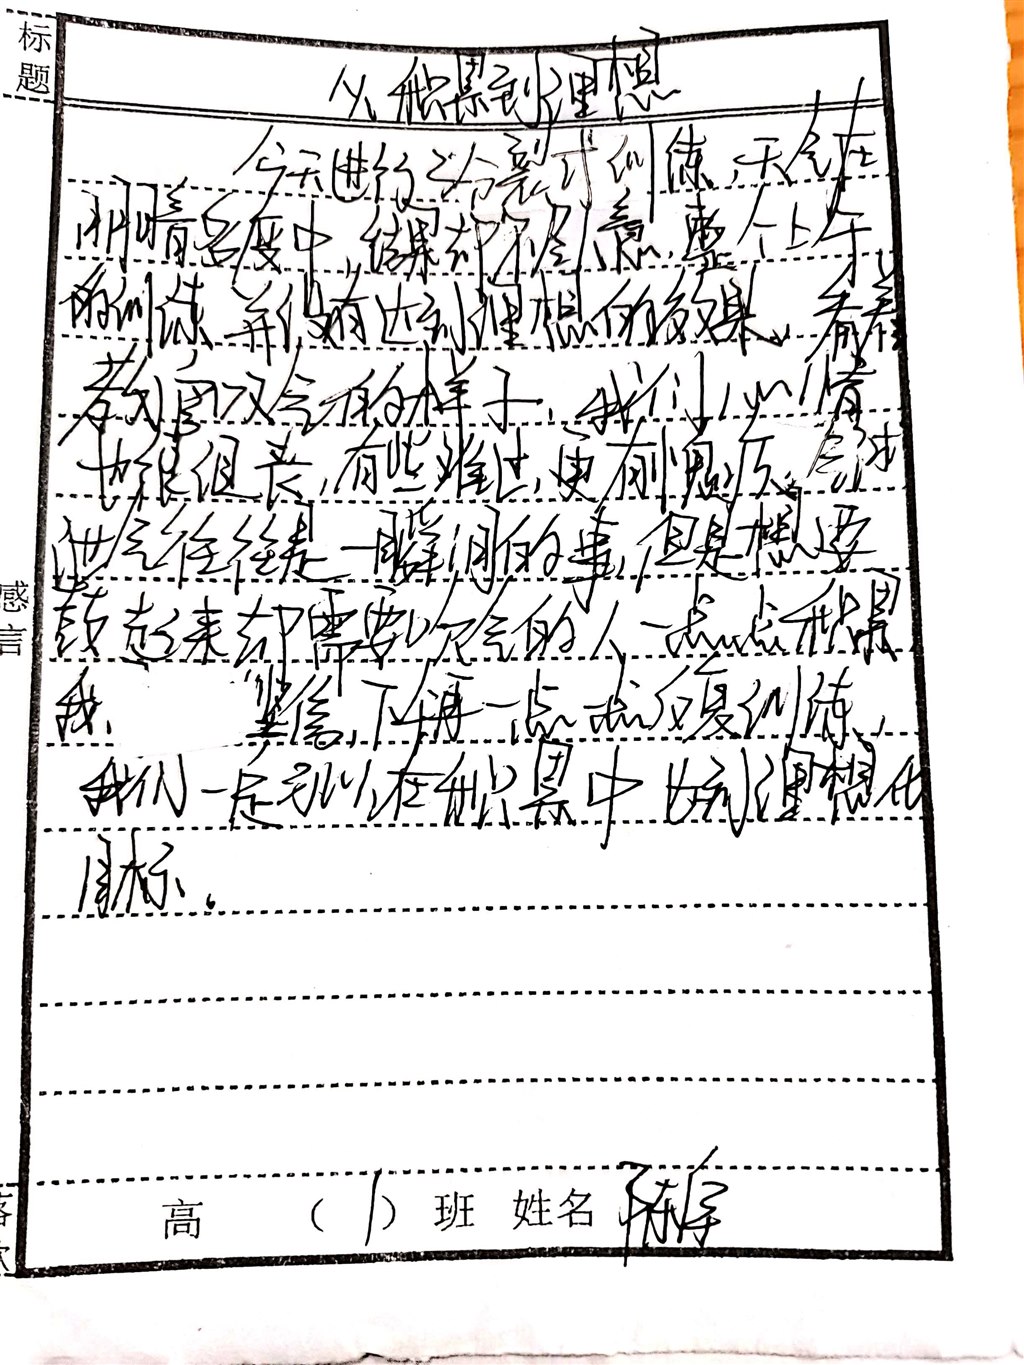 标题
从积累到理想
今天进行了分裂式训练,天气在
阴晴各度中,结果却不尽人意,整个上午
的训练并没有达到理想的效果。看着
教官叹气的样子,我们心情
也很沮丧,有些难过,更有愧疚。
泄气往往是一瞬间的事,但是想要
鼓起来却需要吹气的人一点一点积累
我坚信,下午再一点一点反复训练,
我们一定可以在积累中达到理想化
目标。
感言
高 (1) 班 姓名 陈